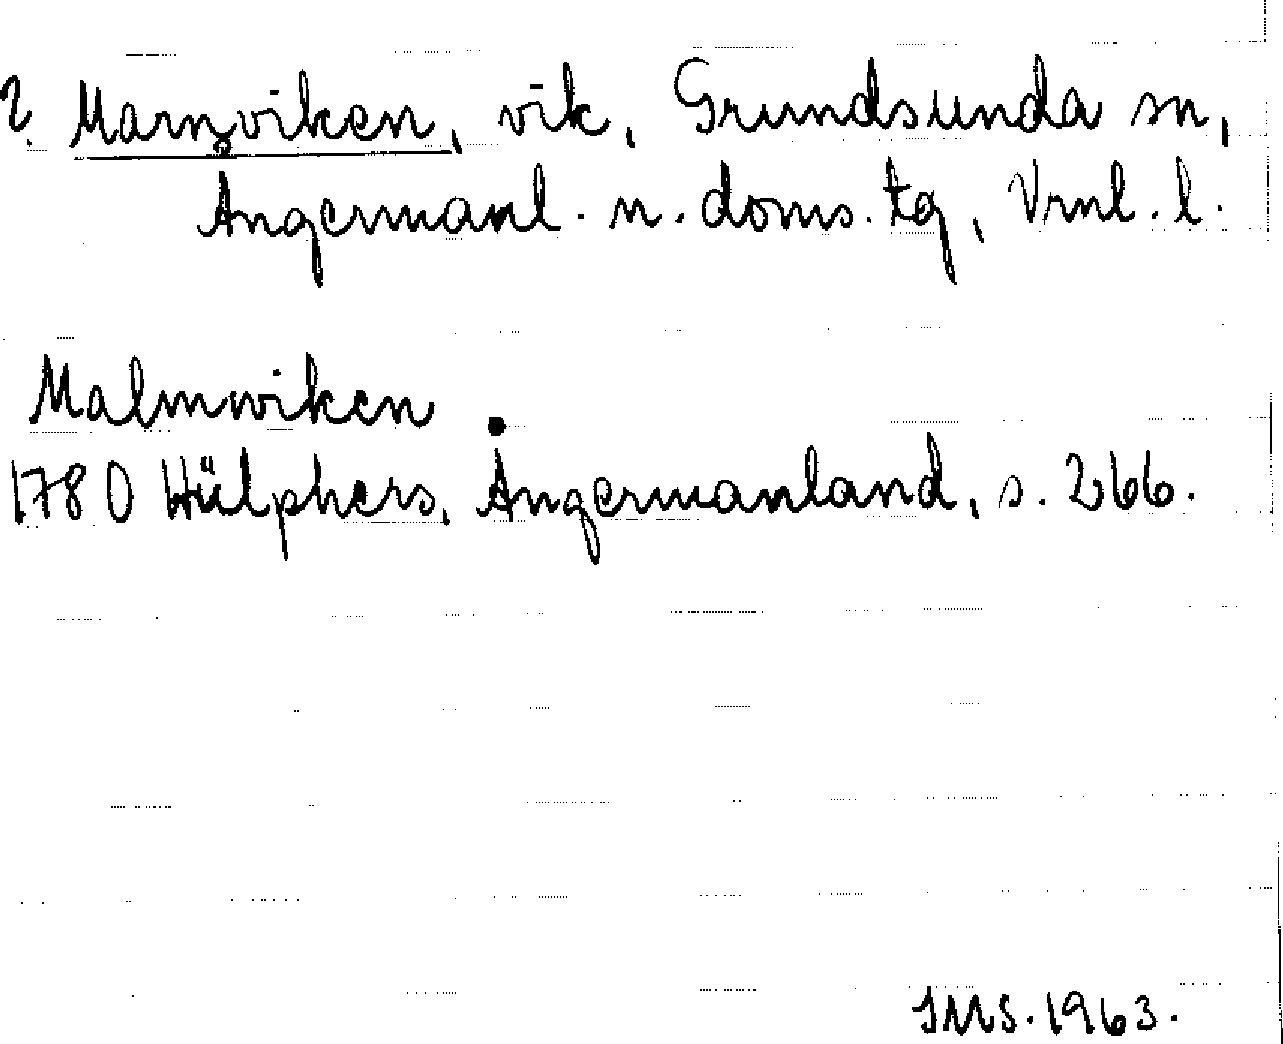 ? Marnviken, vik, Grundsunda sn,
Ångermanl. n. doms. tg, Vrnl. l.
Malmwiken
1780 Hülphers, Ångermanland, s. 266.
IMS. 1963.